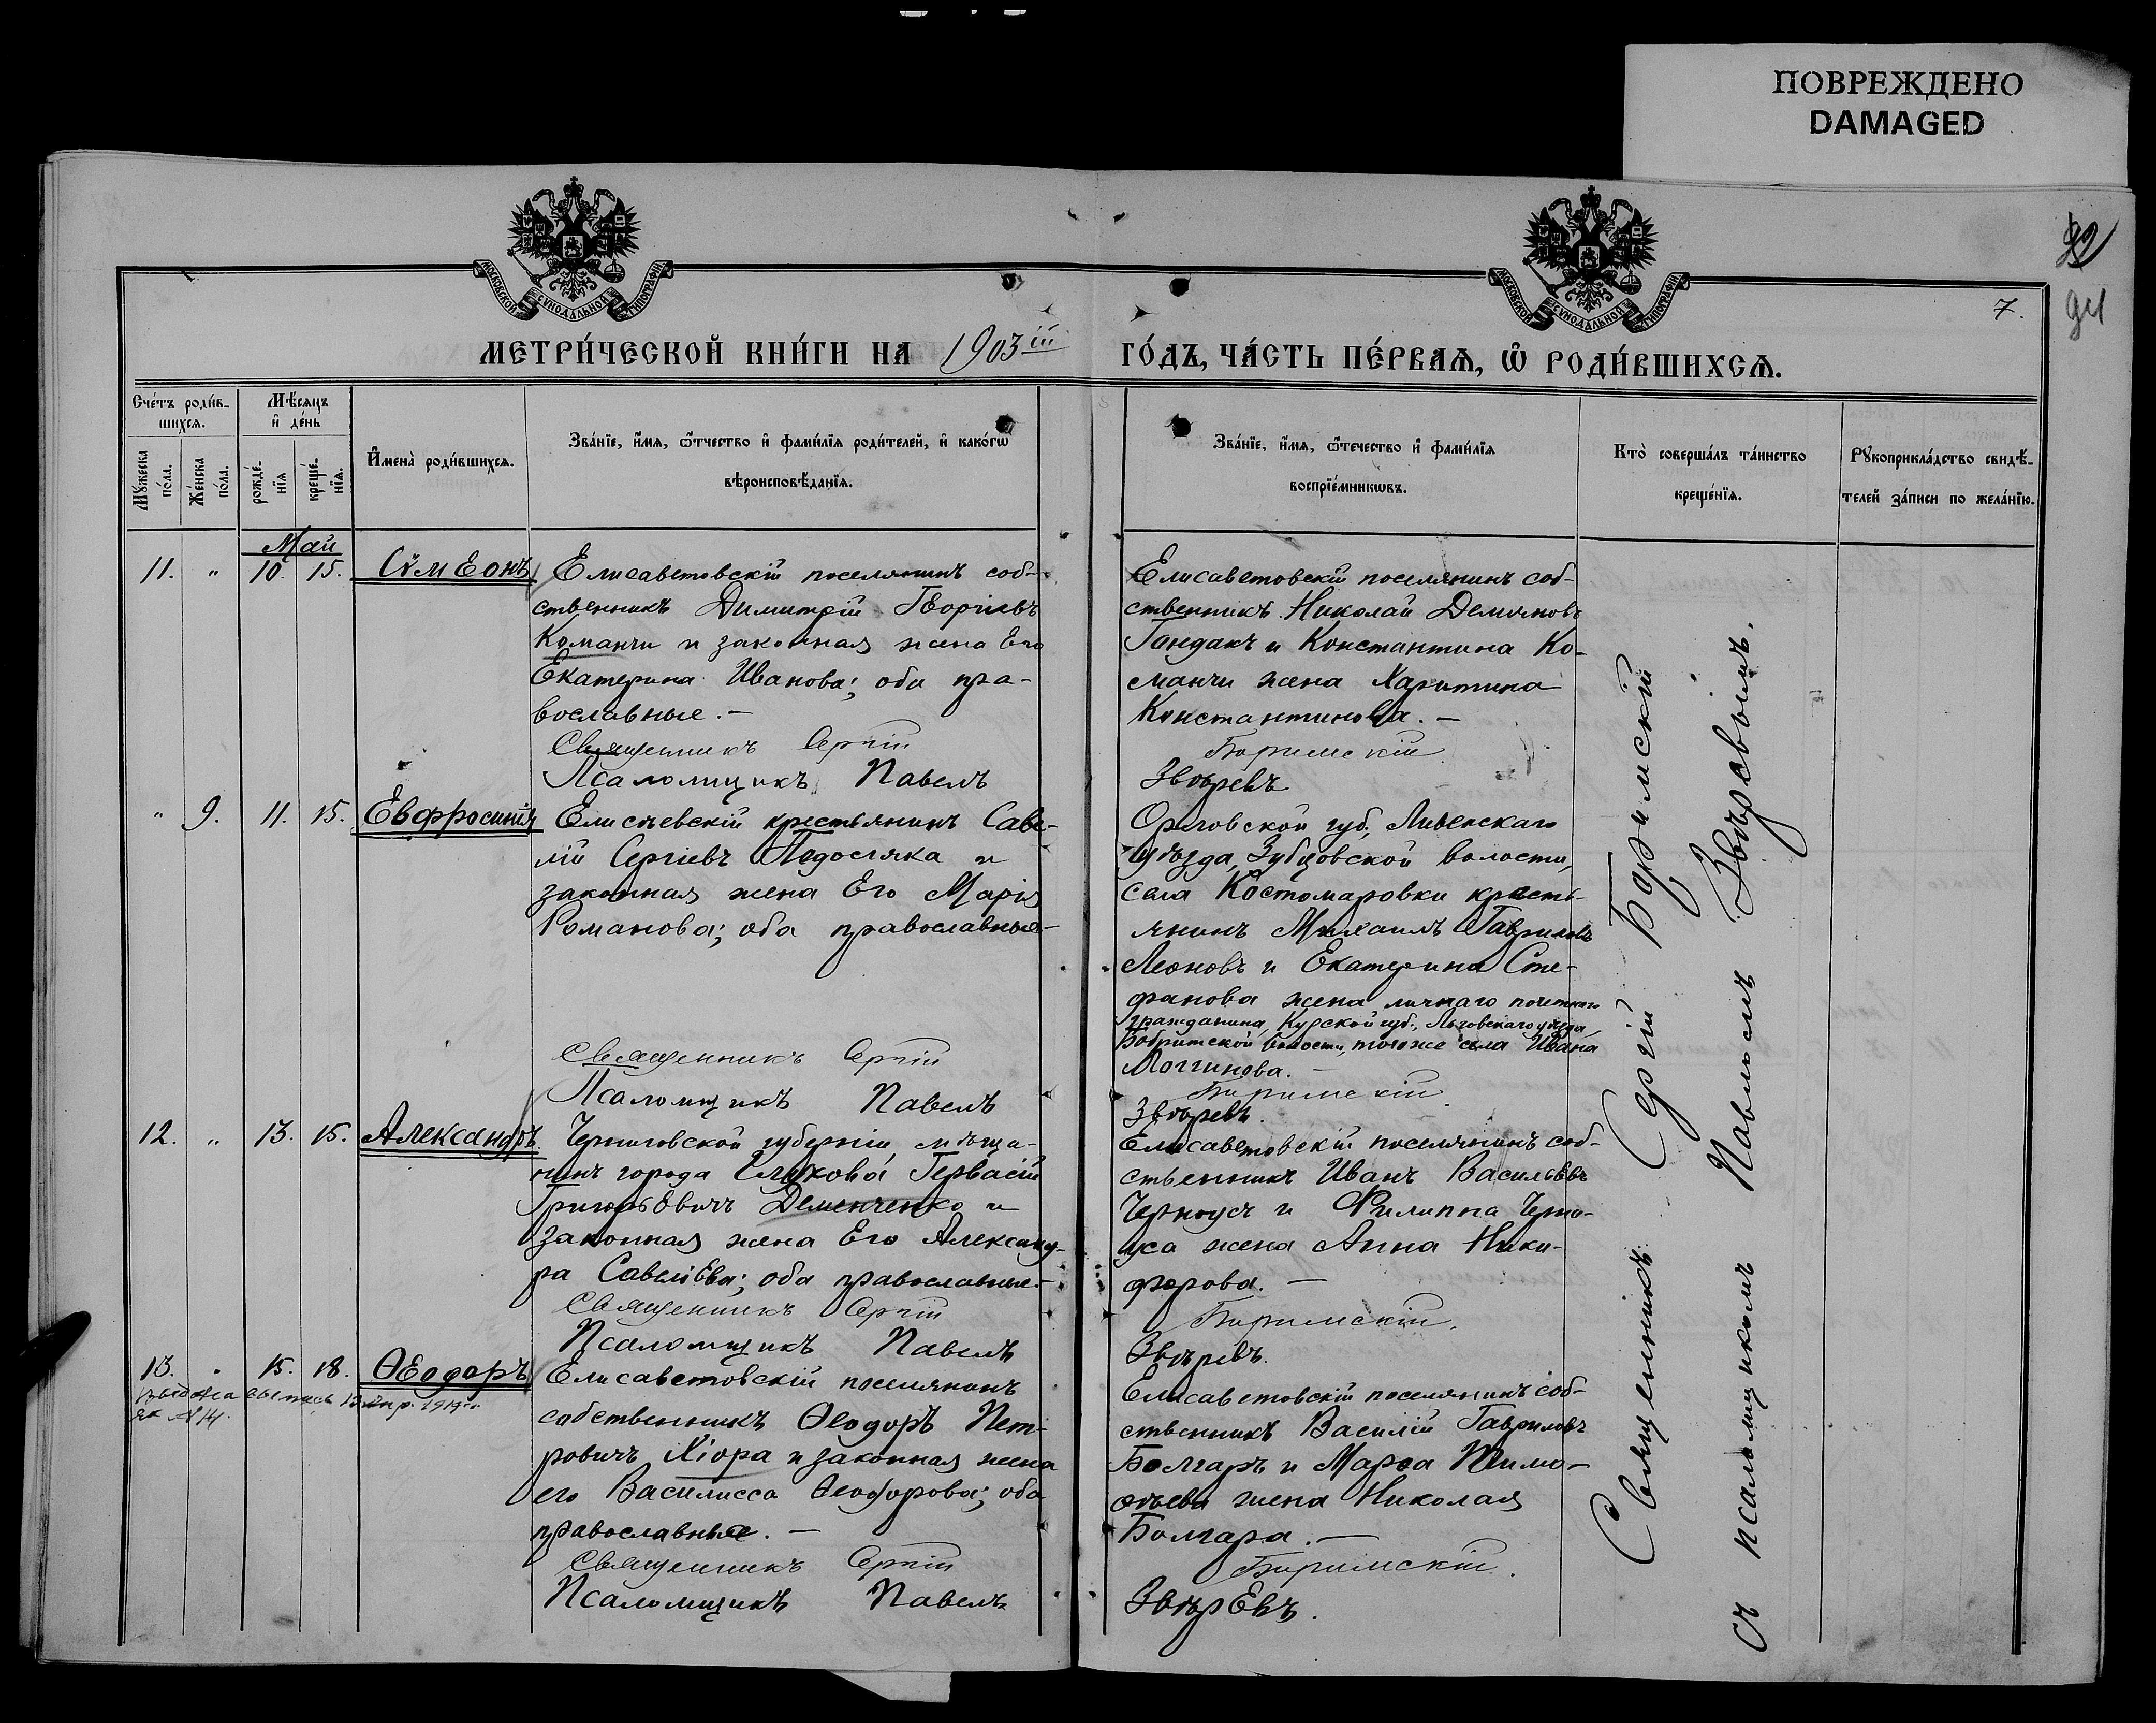 ПОВРЕЖДЕНО
DAMAGED
МОСКОВСКОЙ СѴНОДАЛЬНОЙ ТИПОГРАФІИ
МОСКОВСКОЙ СѴНОДАЛЬНОЙ ТИПОГРАФІИ
7.
94
МЕТРИ́ЧЕСКОЙ КНИ́ГИ НА 1903ій ГО́ДЪ, ЧА́СТЬ ПЕ́РВАѦ, Ѡ РОДИ́ВШИХСѦ.
Сче́тъ роди́в-
шихсѧ.
Мѣ́сѧцъ
и҆ де́нь
Мꙋжеска по́ла.
Же́нска по́ла.
рожде́-нїѧ
креще́-нїѧ.
И҆мена̀ роди́вшихсѧ.
Зва́нїе, и҆́мѧ, ѻ҆́тчество и҆ фами́лїѧ роди́телей, и҆ како́гѡ
вѣроисповѣ́данїѧ.
Зва́нїе, и҆́мѧ, ѻ҆́течество и҆ фами́лїѧ
воспрїе́мникѡвъ.
Кто̀ соверша́лъ та́инство
креще́нїѧ.
Рꙋкоприкла́дство свидѣ́-
телей за́писи по жела́нїю.
Май
11. „ 10. 15. Сѵмеонъ
Елисаветовскій поселянинъ соб-
ственникъ Димитрій Георгіевъ
Команчи и законная жена Его
Екатерина Иванова; оба пра-
вославные. –
Священникъ Сергій
Псаломщикъ Павелъ
Елисаветовскій поселянинъ соб-
ственникъ Николай Демяновъ
Гандакъ и Константина Ко-
манчи жена Харитина
Константинова. –
Боримскій
Звѣревъ
„ 9. 11. 15. Евфросинія
Елисѣевскій крестьянинъ Саве-
лій Сергіевъ Педосяка и
законная жена Его Марія
Романова; оба православные
Священникъ Сергій
Псаломщикъ Павелъ
Орловской губ., Ливенскаго
уѣзда, Зубцовской волости,
села Костомаровки кресть-
янинъ Михаилъ Гавриловъ
Леоновъ и Екатерина Сте-
фанова жена личнаго почетнаго
гражданина, Курской губ., Льговскаго уѣзда,
волости, того же села Ивана
Логгинова. –
Боримскій
Звѣревъ.
12. „ 13. 15. Александръ
Черниговской губерніи мѣща-
нинъ города Глухова Гервасій
Григорьевичъ Деменченко и
законная жена Его Александ-
ра Савеліева; оба православные. –
Священникъ Сергій
Псаломщикъ Павелъ
Елисаветовскій поселянинъ соб-
ственникъ Иванъ Васильевъ
Черноусъ и Филиппа Черно-
уса жена Анна Ники-
форова. –
Боримскій.
Звѣревъ.
13. „ 15. 18. Ѳеодоръ
выдана выпись 13 апр. 1919 г.
за № 14.
Елисаветовскій поселянинъ
собственникъ Ѳеодоръ Пет-
ровичъ Хіора и законная жена
его Василисса Ѳеодорова; оба
православные. –
Священникъ Сергій
Псаломщикъ Павелъ
Елисаветовскій поселянинъ соб-
ственникъ Василій Гавриловъ
Болгаръ и Марѳа Тимо-
ѳѣева жена Николая
Болгара. –
Боримскій.
Звѣревъ.
Священникъ Сергій Боримскій
съ псаломщикомъ Павломъ Звѣревымъ.